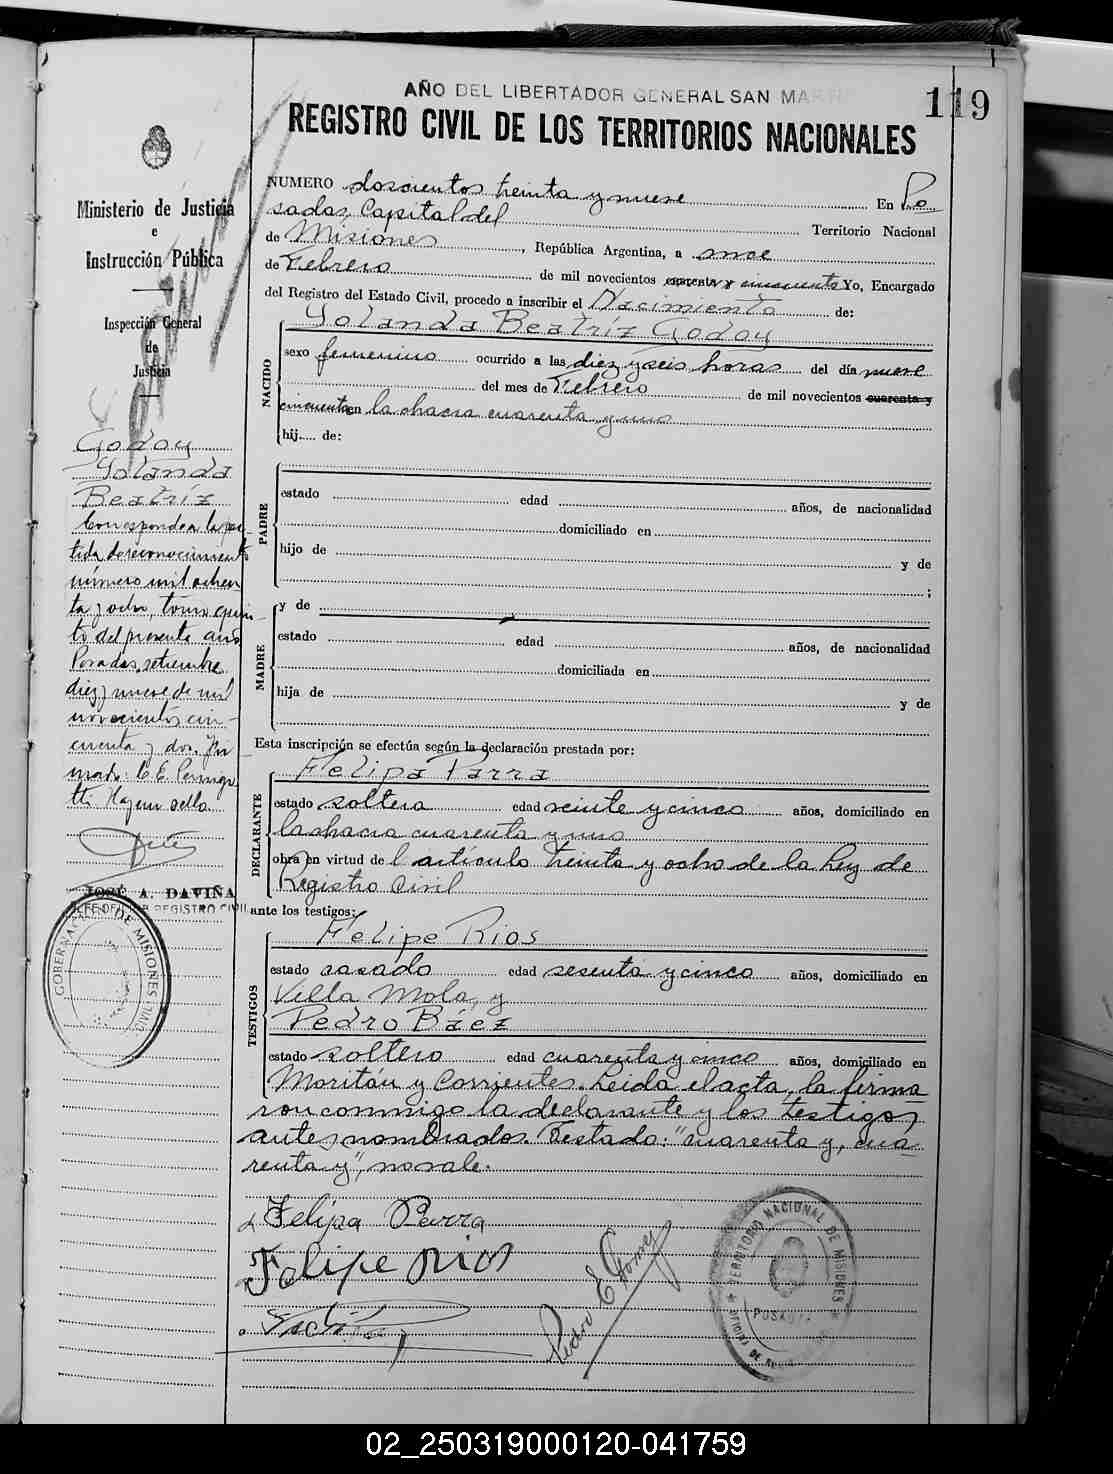 AÑO DEL LIBERTADOR GENERAL SAN MARTIN
119
REGISTRO CIVIL DE LOS TERRITORIOS NACIONALES
Ministerio de Justicia
e
Instrucción Pública
Inspección General
de
Justicia
Godoy
Yolanda
Beatríz
Corresponde a la par-
tida de reconocimiento
número mil ochen
ta y ocho, tomo quin-
to del presente año
Posadas, setiembre
diez y nueve de mil
novecientos cin-
cuenta y dos. Fir
mado: C. E.
Hay un sello
JOSÉ A. DAVIÑA
JEFE OFICINA REGISTRO CIVIL
GOBERNACION DE MISIONES
NUMERO doscientos treinta y nueve En Po
sadas, Capital del Territorio Nacional
de Misiones, República Argentina, a once
de Febrero de mil novecientos cuarenta y cincuenta Yo, Encargado
del Registro del Estado Civil, procedo a inscribir el Nacimiento de:
Yolanda Beatríz Godoy
NACIDO
sexo femenino ocurrido a las diez y seis horas del día nueve
del mes de Febrero de mil novecientos cuarenta y
cincuenta en la chacra cuarenta y uno
hij.... de:
PADRE
estado edad años, de nacionalidad
domiciliado en
hijo de y de
;
MADRE
y de
estado edad años, de nacionalidad
domiciliada en
hija de y de
Esta inscripción se efectúa según la declaración prestada por:
DECLARANTE
Felipa Parra
estado soltera edad veinte y cinco años, domiciliado en
la chacra cuarenta y uno
obra en virtud del artículo treinta y ocho de la Ley de
Registro Civil
ante los testigos:
TESTIGOS
Felipe Rios
estado casado edad sesenta y cinco años, domiciliado en
Villa Mola, y
Pedro Báez
estado soltero edad cuarenta y cinco años, domiciliado en
Moritán y Corrientes. Leida el acta, la firma
ron conmigo la declarante y los testigos
antes nombrados. Testado: "cuarenta y, cua
renta y", no vale.
Felipa Parra
Felipe Rios
Pedro E Gomez
TERRITORIO NACIONAL DE MISIONES
POSADAS
02_250319000120-041759